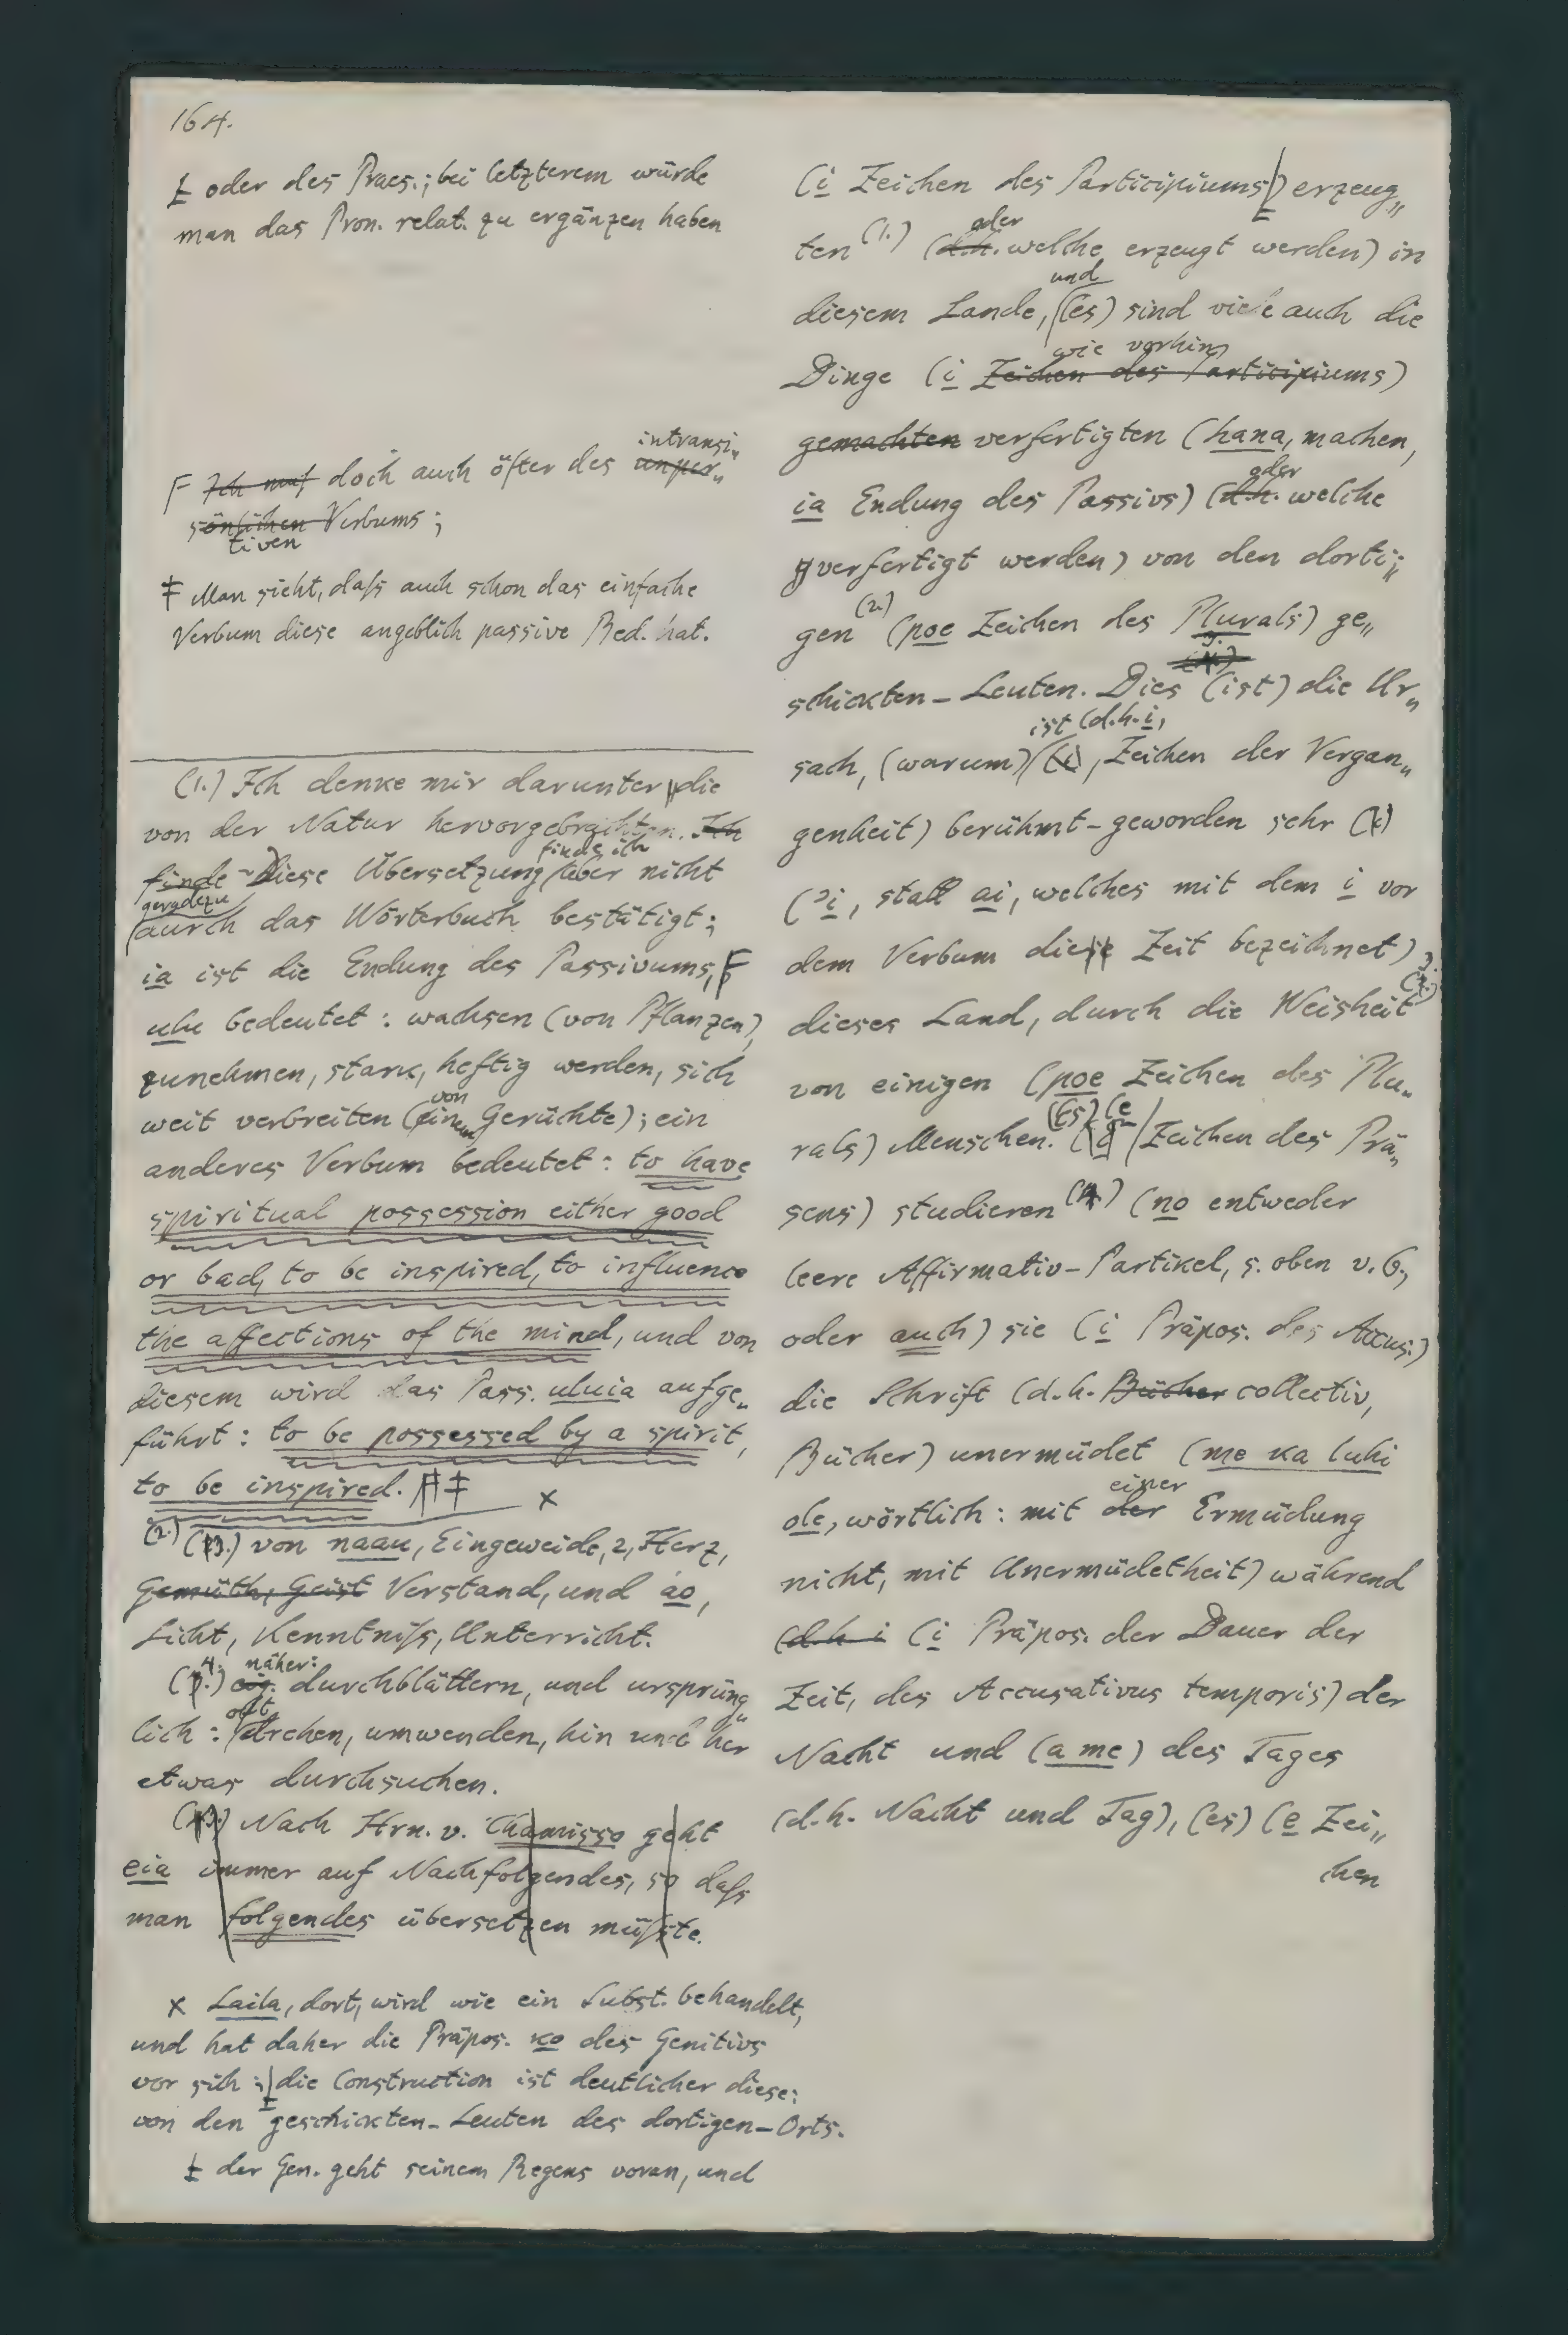 164.
‡ oder des Praes.; bei letzterem würde
man das Pron. relat. zu ergänzen haben
intransi„
F Ich muß doch auch öfter des unper„
sönlichen Verbums;
tiven
‡ Man sieht, daß auch schon das einfache
Verbum diese angeblich passive Bed. hat.
(1.) Ich denke mir darunter die
von der Natur hervorgebrachten. Ich
finde ich
finde Diese Übersetzung aber nicht
geradezu
durch das Wörterbuch bestätigt;
ia ist die Endung des Passivums, F
ulu bedeutet: wachsen (von Pflanzen),
zunehmen, stark, heftig werden, sich
von
weit verbreiten (einem Gerüchte); ein
anderes Verbum bedeutet: to have
spiritual possession either good
or bad, to be inspired, to influence
the affections of the mind, und von
diesem wird das Pass. uluia aufge„
führt: to be possessed by a spirit,
to be inspired. ‡ x
(2.) (3.) von naau, Eingeweide, 2, Herz,
Gemüth, Geist Verstand, und ao,
Licht, Kenntniß, Unterricht.
4. näher:
(.) eig. durchblättern, und ursprüng„
oft
lich: drehen, umwenden, hin und her
etwas durchsuchen.
(3.) Nach Hrn. v. Chamisso geht
eia immer auf Nachfolgendes, so daß
man folgendes übersetzen müßte.
x Laila, dort, wird wie ein Subst. behandelt,
und hat daher die Präpos. ko des Genitivs
vor sich; die Construction ist deutlicher diese:
von den geschickten-Leuten des dortigen-Orts.
‡ der Gen. geht seinem Regens voran, und
(i Zeichen des Participiums) erzeug„
oder
ten (1.) (d.h. welche erzeugt werden) in
und
diesem Lande, (es) sind viele auch die
wie vorhin
Dinge (i Zeichen des Participiums)
gemachten verfertigten (hana, machen,
oder
ia Endung des Passivs) (d.h. welche
verfertigt werden) von den dorti„
(2.)
gen (poe Zeichen des Plurals) ge„
3.
schickten-Leuten. Dies (ist) die Ur„
ist (d.h. i,
sach, (warum) (i), Zeichen der Vergan„
genheit) berühmt-geworden sehr (i)
(i, statt ai, welches mit dem i vor
dem Verbum diese Zeit bezeichnet)
3.
dieses Land, durch die Weisheit
von einigen (poe Zeichen des Plu„
(Es) (e
rals) Menschen. Zeichen des Prä„
sens) studieren (4.) (no entweder
leere Affirmativ-Partikel, s. oben v. 6.,
oder auch) sie (i Präpos. des Accus.)
die Schrift (d.h. Bücher collectiv,
Bücher) unermüdet (me ka luhi
einer
ole, wörtlich: mit der Ermüdung
nicht, mit Unermüdetheit) während
(d.h. i (i Präpos. der Dauer der
Zeit, des Accusativus temporis) der
Nacht und (a me) des Tages
(d.h. Nacht und Tag), (es) (e Zei„
chen